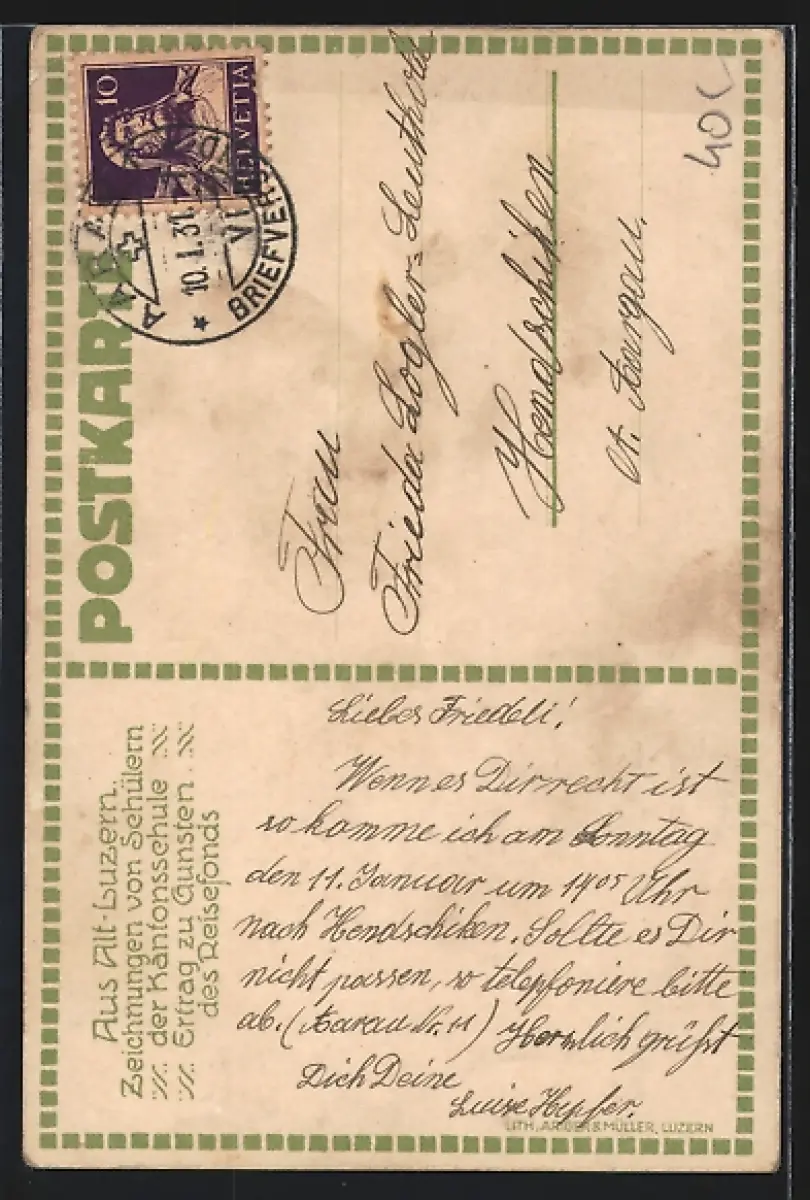 POSTKARTE
10
HELVETIA
AARAU
10.I.31.
VI
BRIEFVERSAND
40
Frau
Frieda Zogler-Leuthold
Hendschiken
Kt. Aargau.
Aus Alt-Luzern.
Zeichnungen von Schülern
der Kantonsschule
Ertrag zu Gunsten
des Reisefonds
Liebes Friedeli!
Wenn es Dir recht ist
so komme ich am Sonntag
den 11. Januar um 14 05 Uhr
nach Hendschiken. Sollte es Dir
nicht passen, so telephoniere bitte
ab. (Aarau Nr. 11) Herzlich grüsst
Dich Deine
Luise
LITH. & MÜLLER, LUZERN